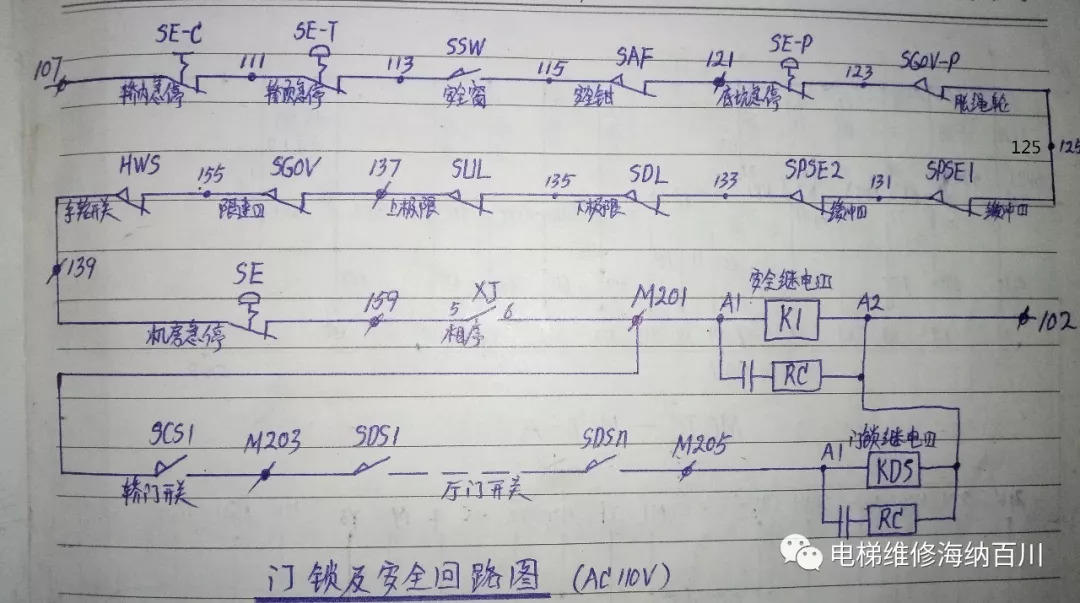 SE-C SE-T SSW SAF SE-P SGOV-P
107 111 113 115 121 123
轿内急停 轿顶急停 安全窗 安全钳 底坑急停 胀绳轮
125 125
HWS 155 SGOV 137 SUL 135 SDL 133 SPSE2 131 SPSE1
手轮开关 限速四 上极限 下极限 缓冲四 缓冲四
139
SE 159 XJ M201 A1 安全继电四 A2
5 6 K1 102
机房急停 相序
RC
SCS1 M203 SDS1 SDSn M205 A1 门锁继电四
KDS
轿门开关 厅门开关
RC
电梯维修海纳百川
门锁及安全回路图 (AC110V)